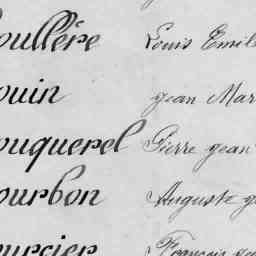 oullére Louis Emil
ouin jean Mar
ouquerel Pierre jean
ourbon Auguste
ourcier François